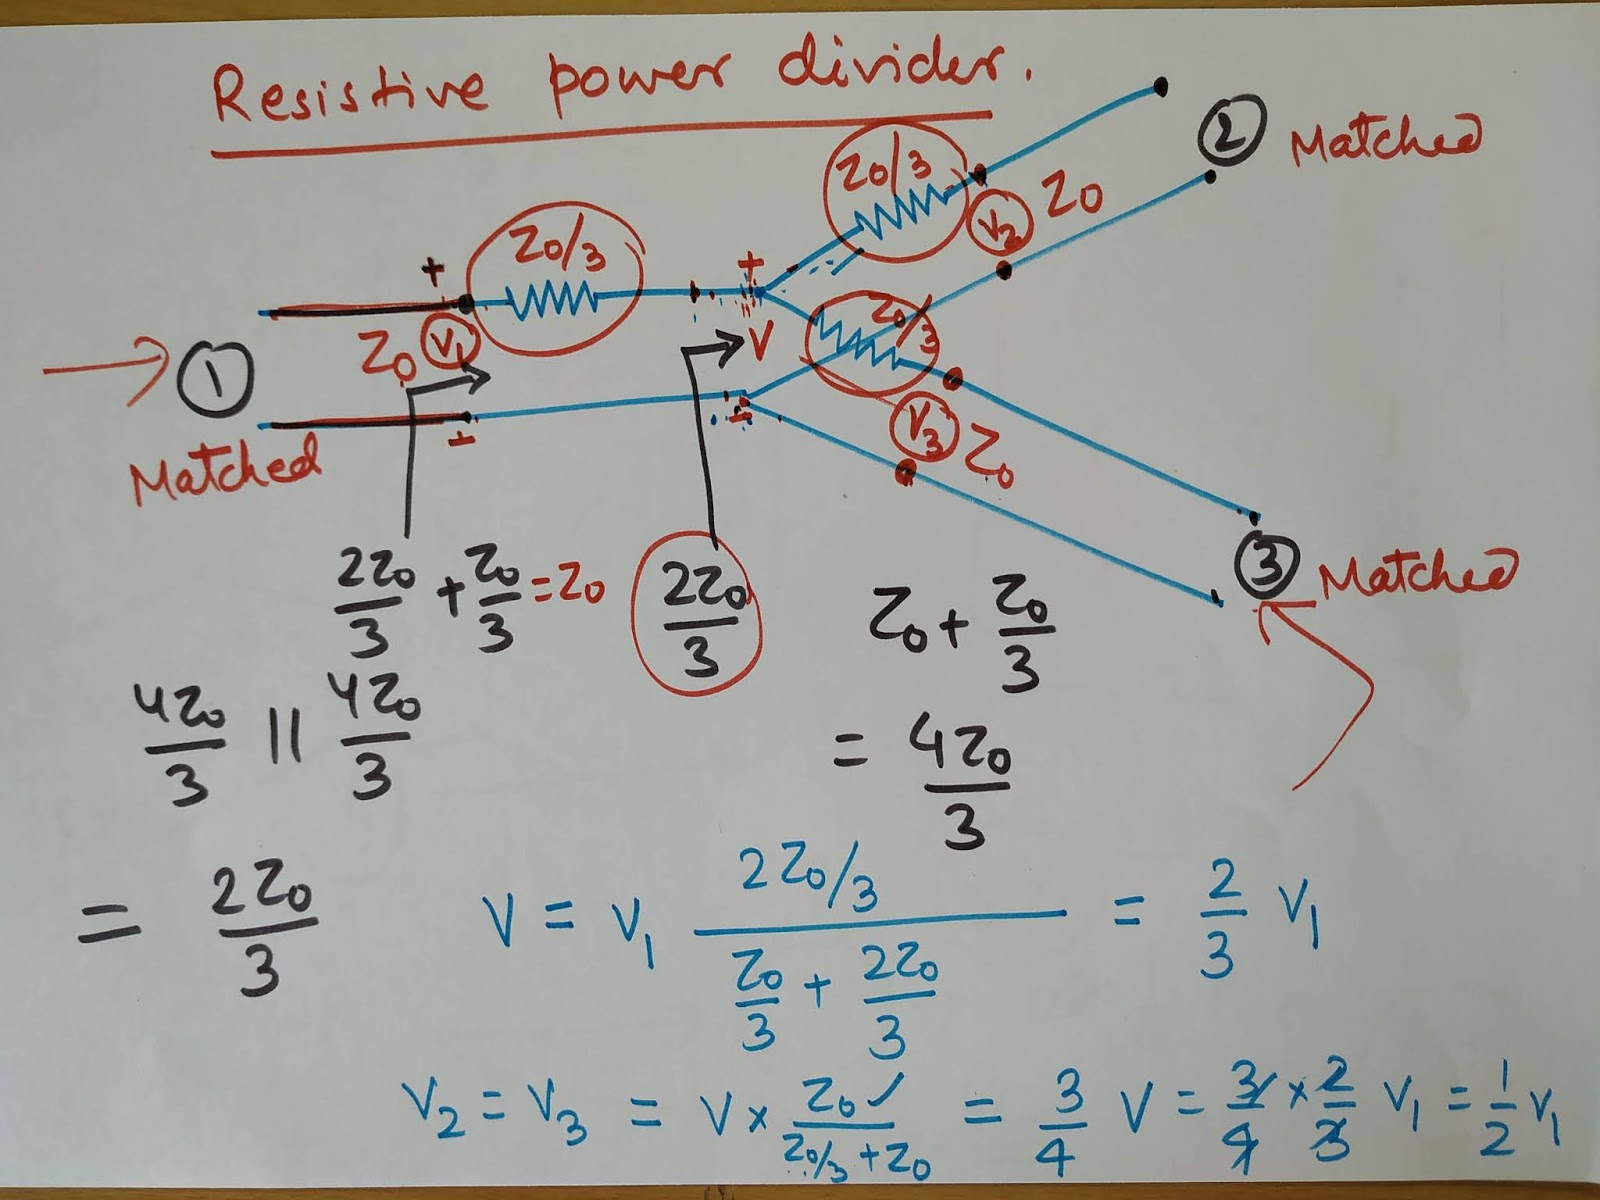 Resistive power divider.
Z0/3
② Matched
Z0/3
V2 Z0
+
+
Z0/3
Z0 V1
V
①
V3 Z0
Matched
③ Matched
2Z0/3 + Z0/3 = Z0
2Z0/3
Z0 + Z0/3
4Z0/3 || 4Z0/3
= 4Z0/3
= 2Z0/3
V = V1 (2Z0/3)/(Z0/3 + 2Z0/3) = 2/3 V1
V2 = V3 = V × Z0/(Z0/3 + Z0) = 3/4 V = 3/4 × 2/3 V1 = 1/2 V1